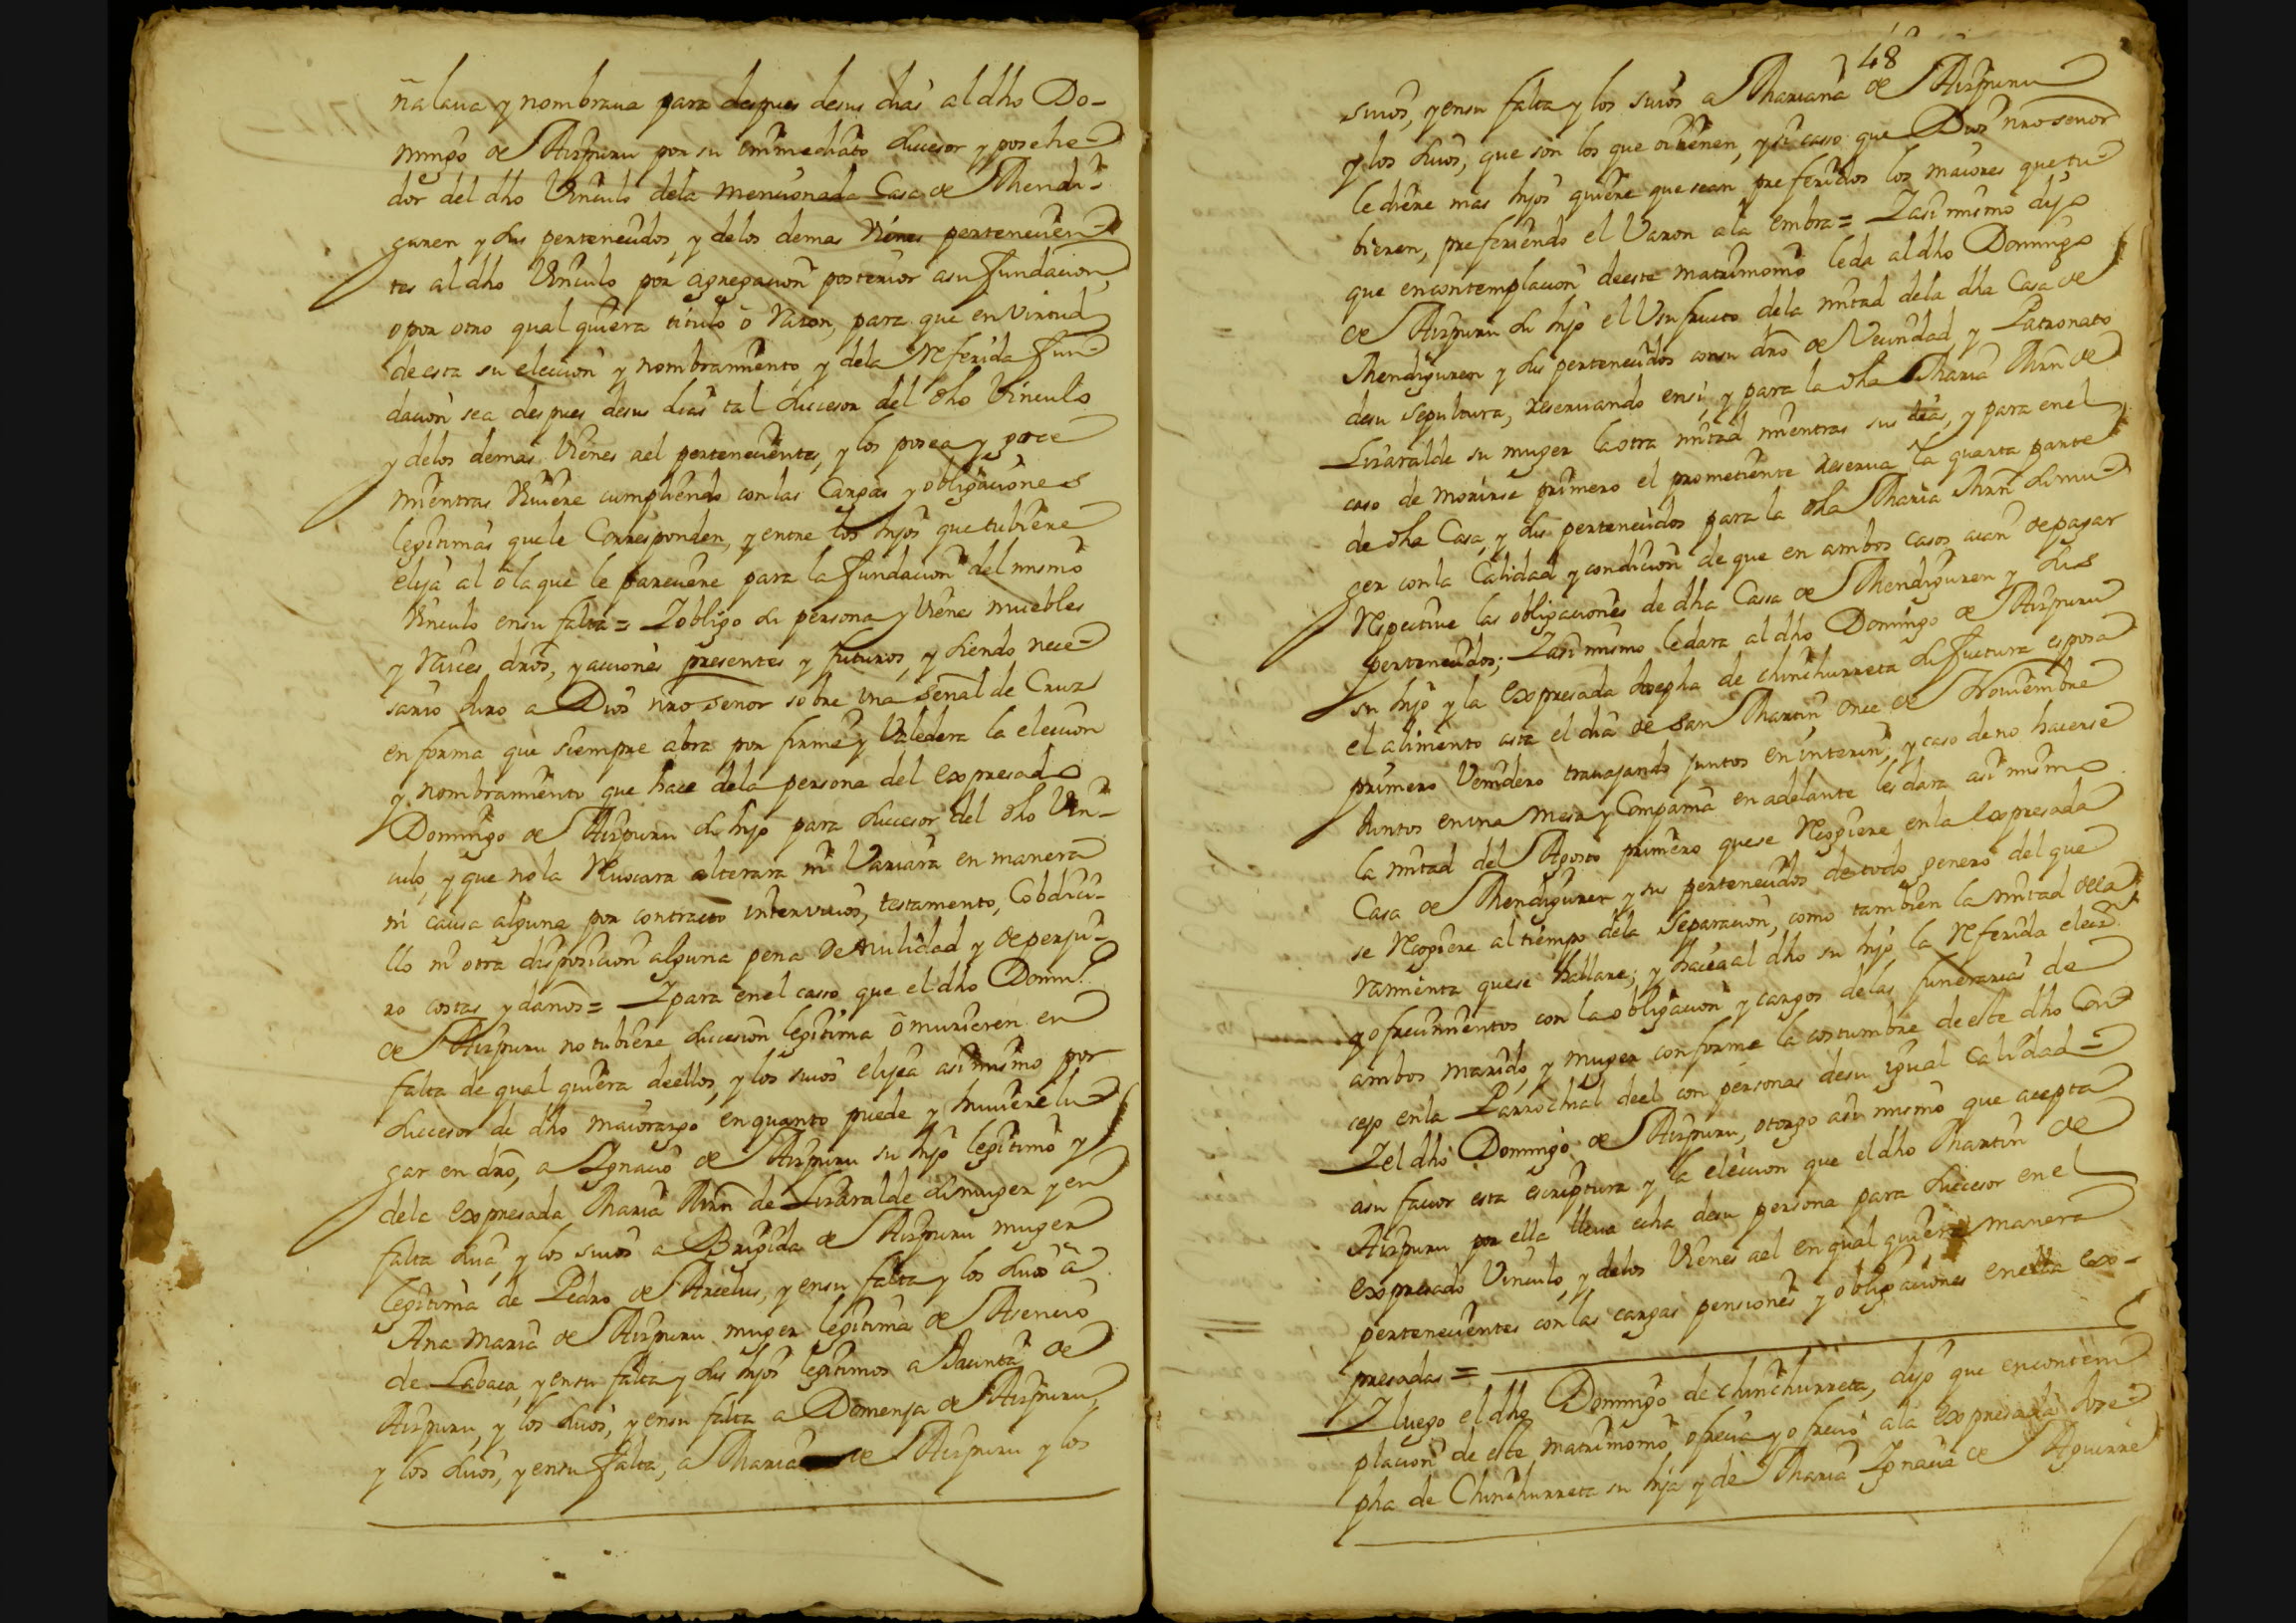 ñalaua y nombraua para despues desus dias al dho Do-
mingo de Aizpuru por su inmediato subcesor y posehe-
dor del dho Vinculo dela mencionada Casa de Mendi-
guren y sus pertenecidos, y delos demas Vienes pertenecien-
tes al dho Vinculo por agregacion posterior asu fundacion,
o por otro qual quiera titulo o razon, para que en virtud
de esta su eleccion y nombramiento y dela referida fun-
dacion sea despues desus dias tal subcesor del dho Vinculo
y delos demas Vienes ael pertenecientes, y los posea y goce
mientras Viuiere cumpliendo con las Cargas y obligaciones
legitimas quele Corresponden, y entre los hijos que tubiere
elija al o la que le pareciere para la fundacion del mismo
Vinculo ensu falta = Y obligo su persona y Vienes muebles
y raices, dros, y acciones presentes y futuros, y siendo nece-
sario Juro a Dios nro señor sobre Vna señal de Cruz
en forma que siempre abra por firme y Valedera la eleccion
y nombramiento que hace dela persona del expresado
Domingo de Aizpuru su hijo para subcesor del dho Vin-
culo, y que no la reuocara alterara ni Variara en manera
ni causa alguna por contracto interviuos, testamento, Cobdici-
llo ni otra disposicion alguna pena de nulidad y de perju-
ro costas y daños = Y para enel casso que el dho Domin.
de Aizpuru no tubiere subcesion legitima o murieren en
falta de qual quiera deellos, y los suios elijea asimismo por
subcesor de dho maiorazgo en quanto puede y huuiere lu-
gar en dro, a Ygnacio de Aizpuru su hijo legitimo y
dela expresada Maria Mrn de Lizaralde su muger y en
falta suia, y los suios a Brigida de Aizpuru muger
legitima de Pedro de Arcelus, y ensu falta y los suios a
Ana Maria de Aizpuru muger legitima de Asencio
de Labaca, y ensu falta y sus hijos legitimos a Jacinta de
Aizpuru, y los suios, y ensu falta a Domenja de Aizpuru,
y los suios, y ensu falta, a Maria de Aizpuru y los
48
suios, y ensu falta y los suios a Mariana de Aizpuru
y los suios, que son los que tienen, y si caso que Dios nro señor
le diere mas hijos quiere que sean preferidos los maiores que tu-
bieren, prefiriendo el Varon ala embra = Y asi mismo dijo
que encontemplacion deeste matrimonio le da al dho Domingo
de Aizpuru su hijo el Vsufructo dela mitad dela dha Casa de
Mendiguren y sus pertenecidos consu dro de Vecindad, y Patronato
desu sepultura, reseruando en si, y para la dha Maria Mrn de
Lizaralde su muger la otra mitad mientras sus dias, y para enel
caso de morirse primero el prometiente reserua la quarta parte
de dha Casa, y sus pertenecidos para la dha Maria Mrn su mu-
ger con la Calidad y condicion de que en ambos casos aian de pagar
respectiue las obligaciones de dha Cassa de Mendiguren y sus
pertenecidos; Y asi mismo le dara al dho Domingo de Aizpuru
su hijo y la expresada Josepha de chinchurreta su futura esposa
el alimento asta el dia de san Martin once de Nouiembre
primero Venidero trauajando juntos en interin, y caso de no hacerse
Juntos en una mesa y Compania en adelante les dara asi mismo
la mitad del Agosto primero que se recogiere en la expresada
Casa de Mendiguren y sus pertenecidos de todo genero del que
se recogiere al tiempo dela separacion, como tambien la mitad dela
ramienta que se hallare; y hacia al dho su hijo la referida elecn
y ofrecimientos con la obligacion y cargos delas funerarias de
ambos marido, y muger conforme la costumbre deeste dho Con-
cejo enla Parrochial deel con personas desu igual calidad =
Y el dho Domingo de Aizpuru, otorgo asi mismo que acepta
asu fauor esta escriptura y la eleccion que el dho Martin de
Aizpuru por ella lleua echa desu persona para subcesor enel
expresado Vinculo, y delos Vienes ael en qual quiera manera
pertenecientes con las cargas pensiones y obligaciones enella ex-
presadas =
Y luego el dho Domingo de chinchurreta, dijo que encontem-
placion de este matrimonio ofrecia y ofrecio ala expresada Jose-
pha de Chinchurreta su hija y de Maria Ygnacia de Aguirre